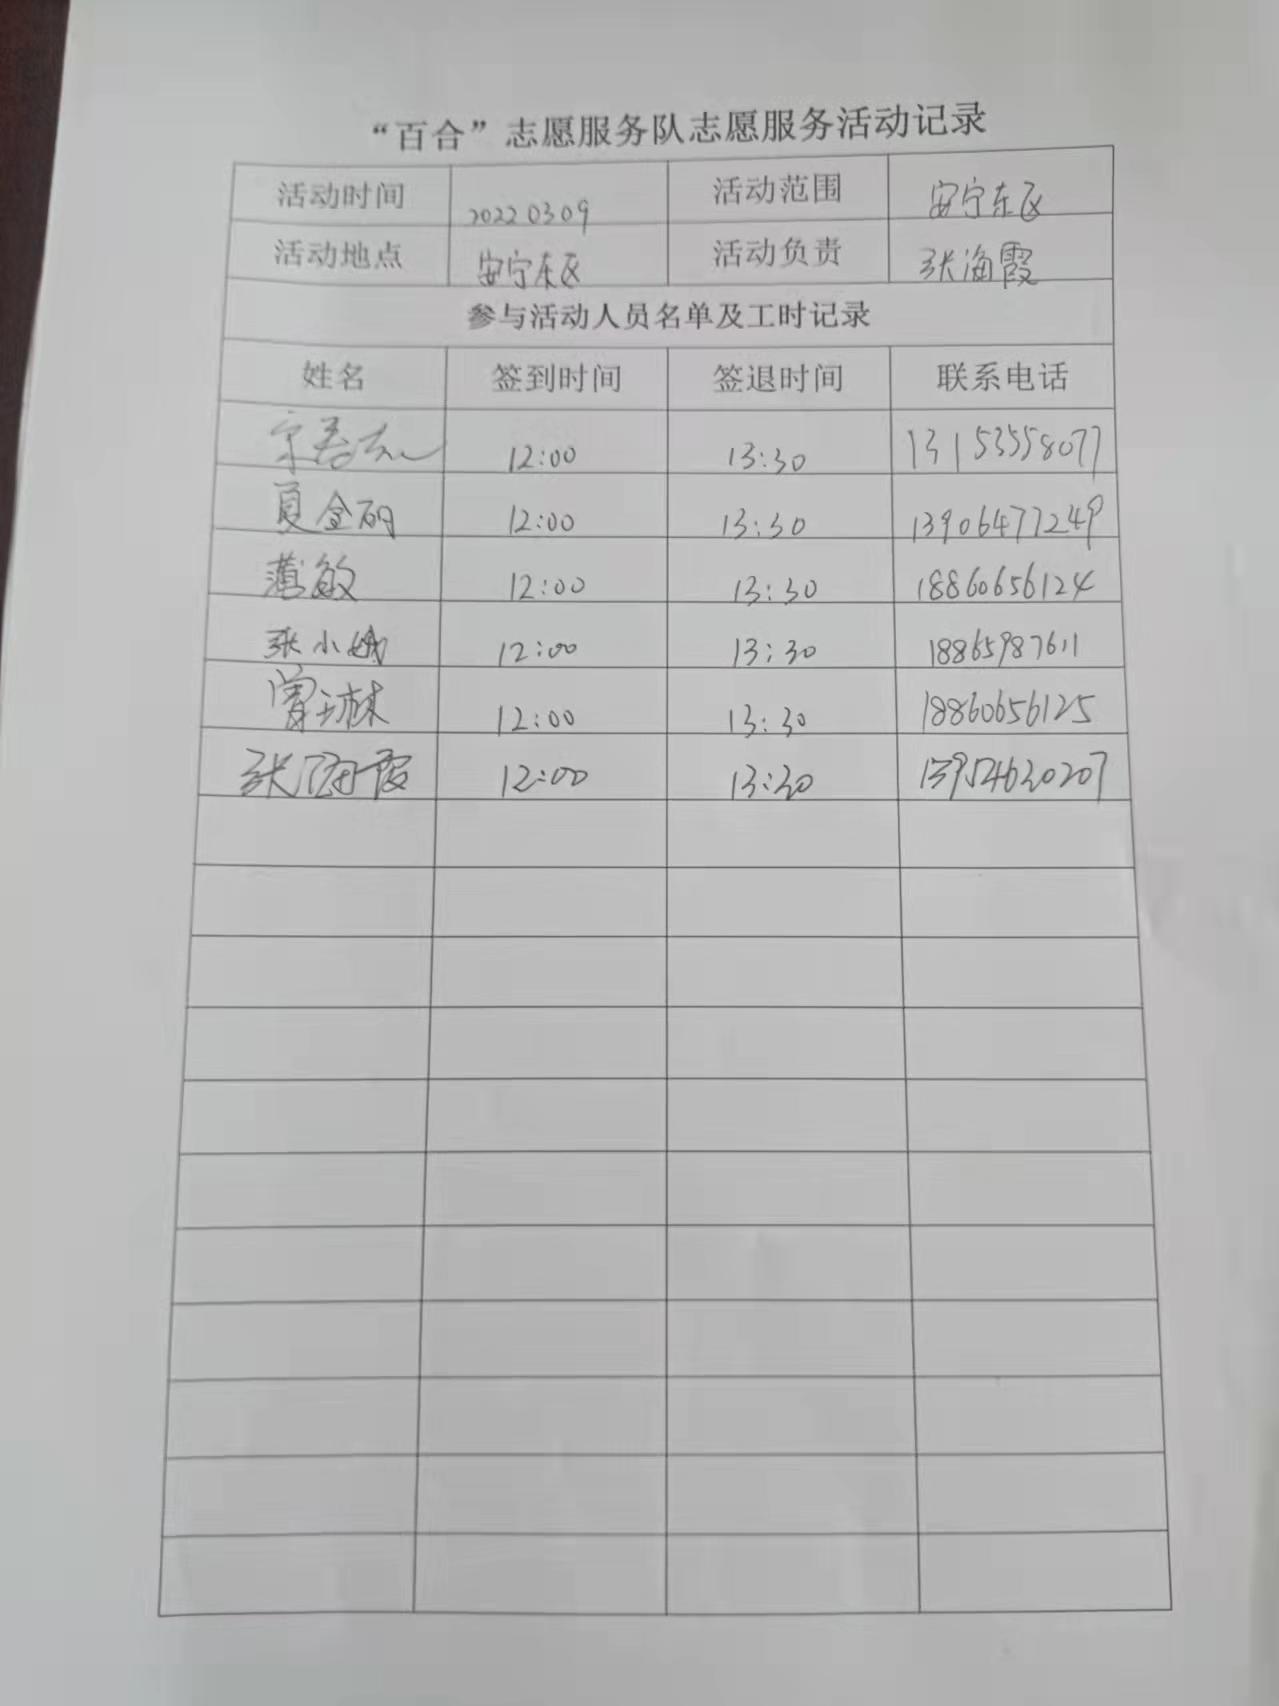 “百合”志愿服务队志愿服务活动记录
活动时间 20220309 活动范围 安宁东区
活动地点 安宁东区 活动负责 张海霞
参与活动人员名单及工时记录
姓名 签到时间 签退时间 联系电话
12:00 13:30 13153558077
夏金硕 12:00 13:30 13906477249
薄敏 12:00 13:30 18860656124
张小娥 12:00 13:30 18865987611
12:00 13:30 18860656125
张海霞 12:00 13:30 13954630207